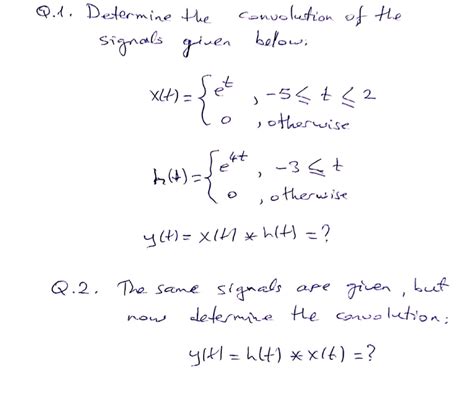 Q.1. Determine the convolution of the
signals given below.
x(t) = { e^t , -5 ≤ t ≤ 2
0 , otherwise
h(t) = { e^4t , -3 ≤ t
0 , otherwise
y(t) = x(t) * h(t) = ?
Q.2. The same signals are given, but
now determine the convolution:
y(t) = h(t) * x(t) = ?